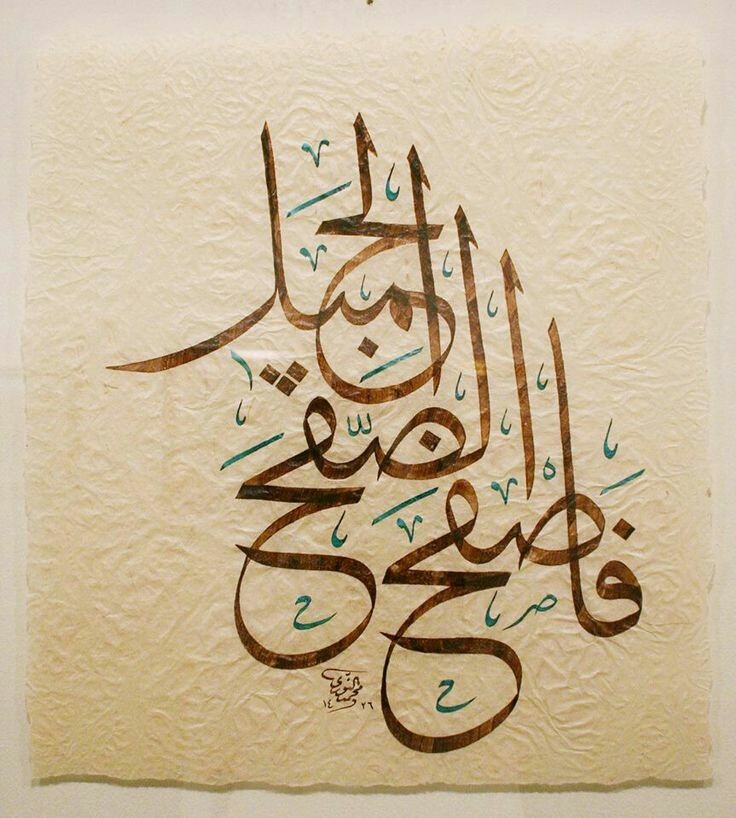 فَاصْفَحِ
الصَّفْحَ
الْجَمِيلَ
١٤٢٦